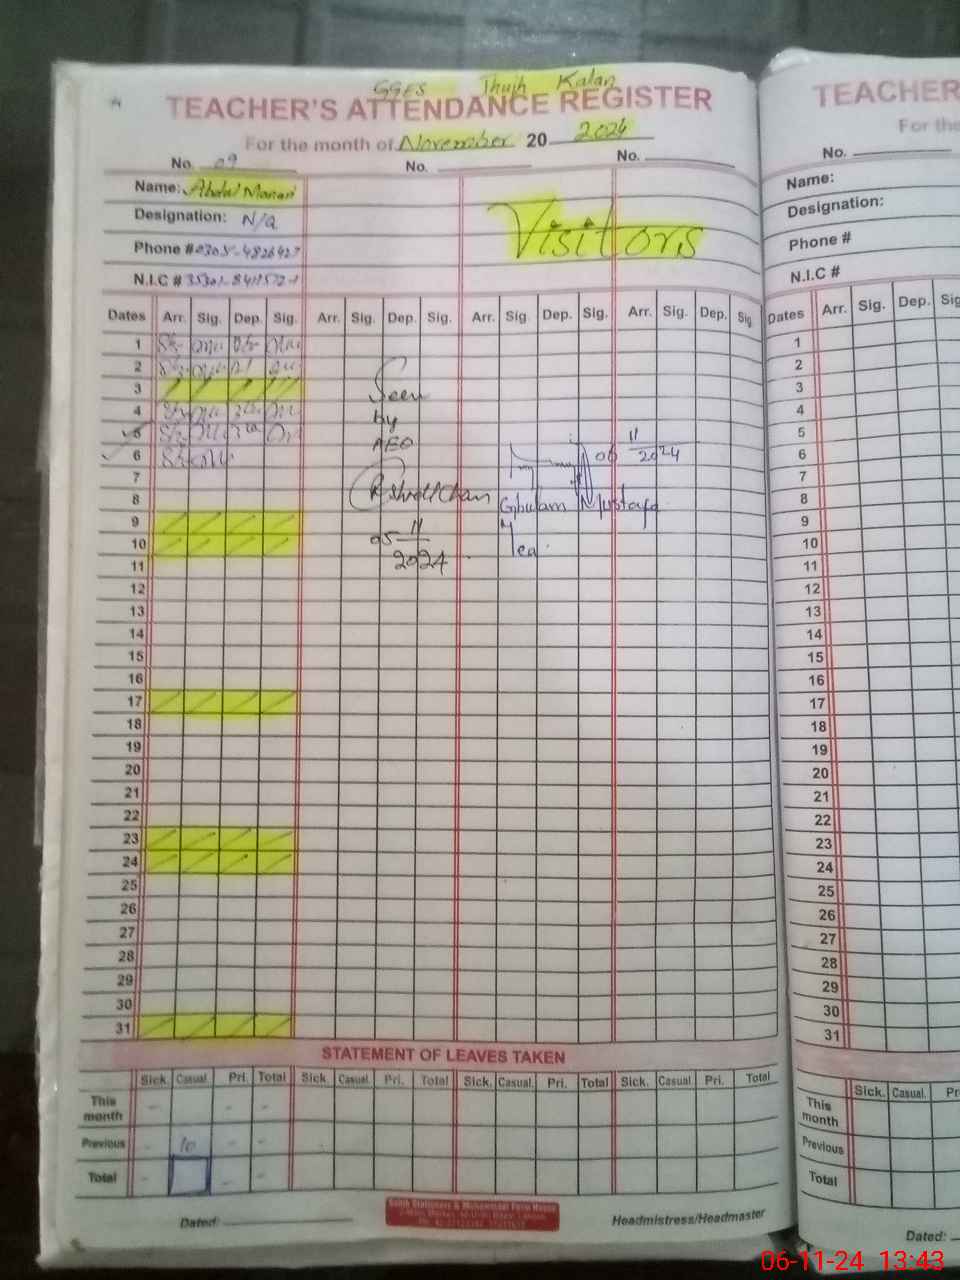 GGES Thujh Kalan
TEACHER'S ATTENDANCE REGISTER
For the month of November 20 2024
No. 09 No. No.
Name: Abdul Manan
Designation: N/A
Phone # 0305-4826427
N.I.C #
Visitors
Dates Arr. Sig. Dep. Sig. Arr. Sig. Dep. Sig. Arr. Sig. Dep. Sig. Arr. Sig. Dep. Sig
1
2
3
4
5
6
7
8
9
10
11
12
13
14
15
16
17
18
19
20
21
22
23
24
25
26
27
28
29
30
31
Seen
by
AEO
05 11
2024
06 11
2024
Ghulam Mustafa
STATEMENT OF LEAVES TAKEN
Sick. Casual. Pri. Total Sick. Casual. Pri. Total Sick. Casual. Pri. Total Sick. Casual Pri. Total
This month - - -
Previous - 10 - -
Total - - -
Dated: Headmistress/Headmaster
TEACHER
For the
No.
Name:
Designation:
Phone #
N.I.C #
Dates Arr. Sig. Dep. Sig
1
2
3
4
5
6
7
8
9
10
11
12
13
14
15
16
17
18
19
20
21
22
23
24
25
26
27
28
29
30
31
Sick. Casual. Pr
This month
Previous
Total
Dated:
06-11-24 13:43